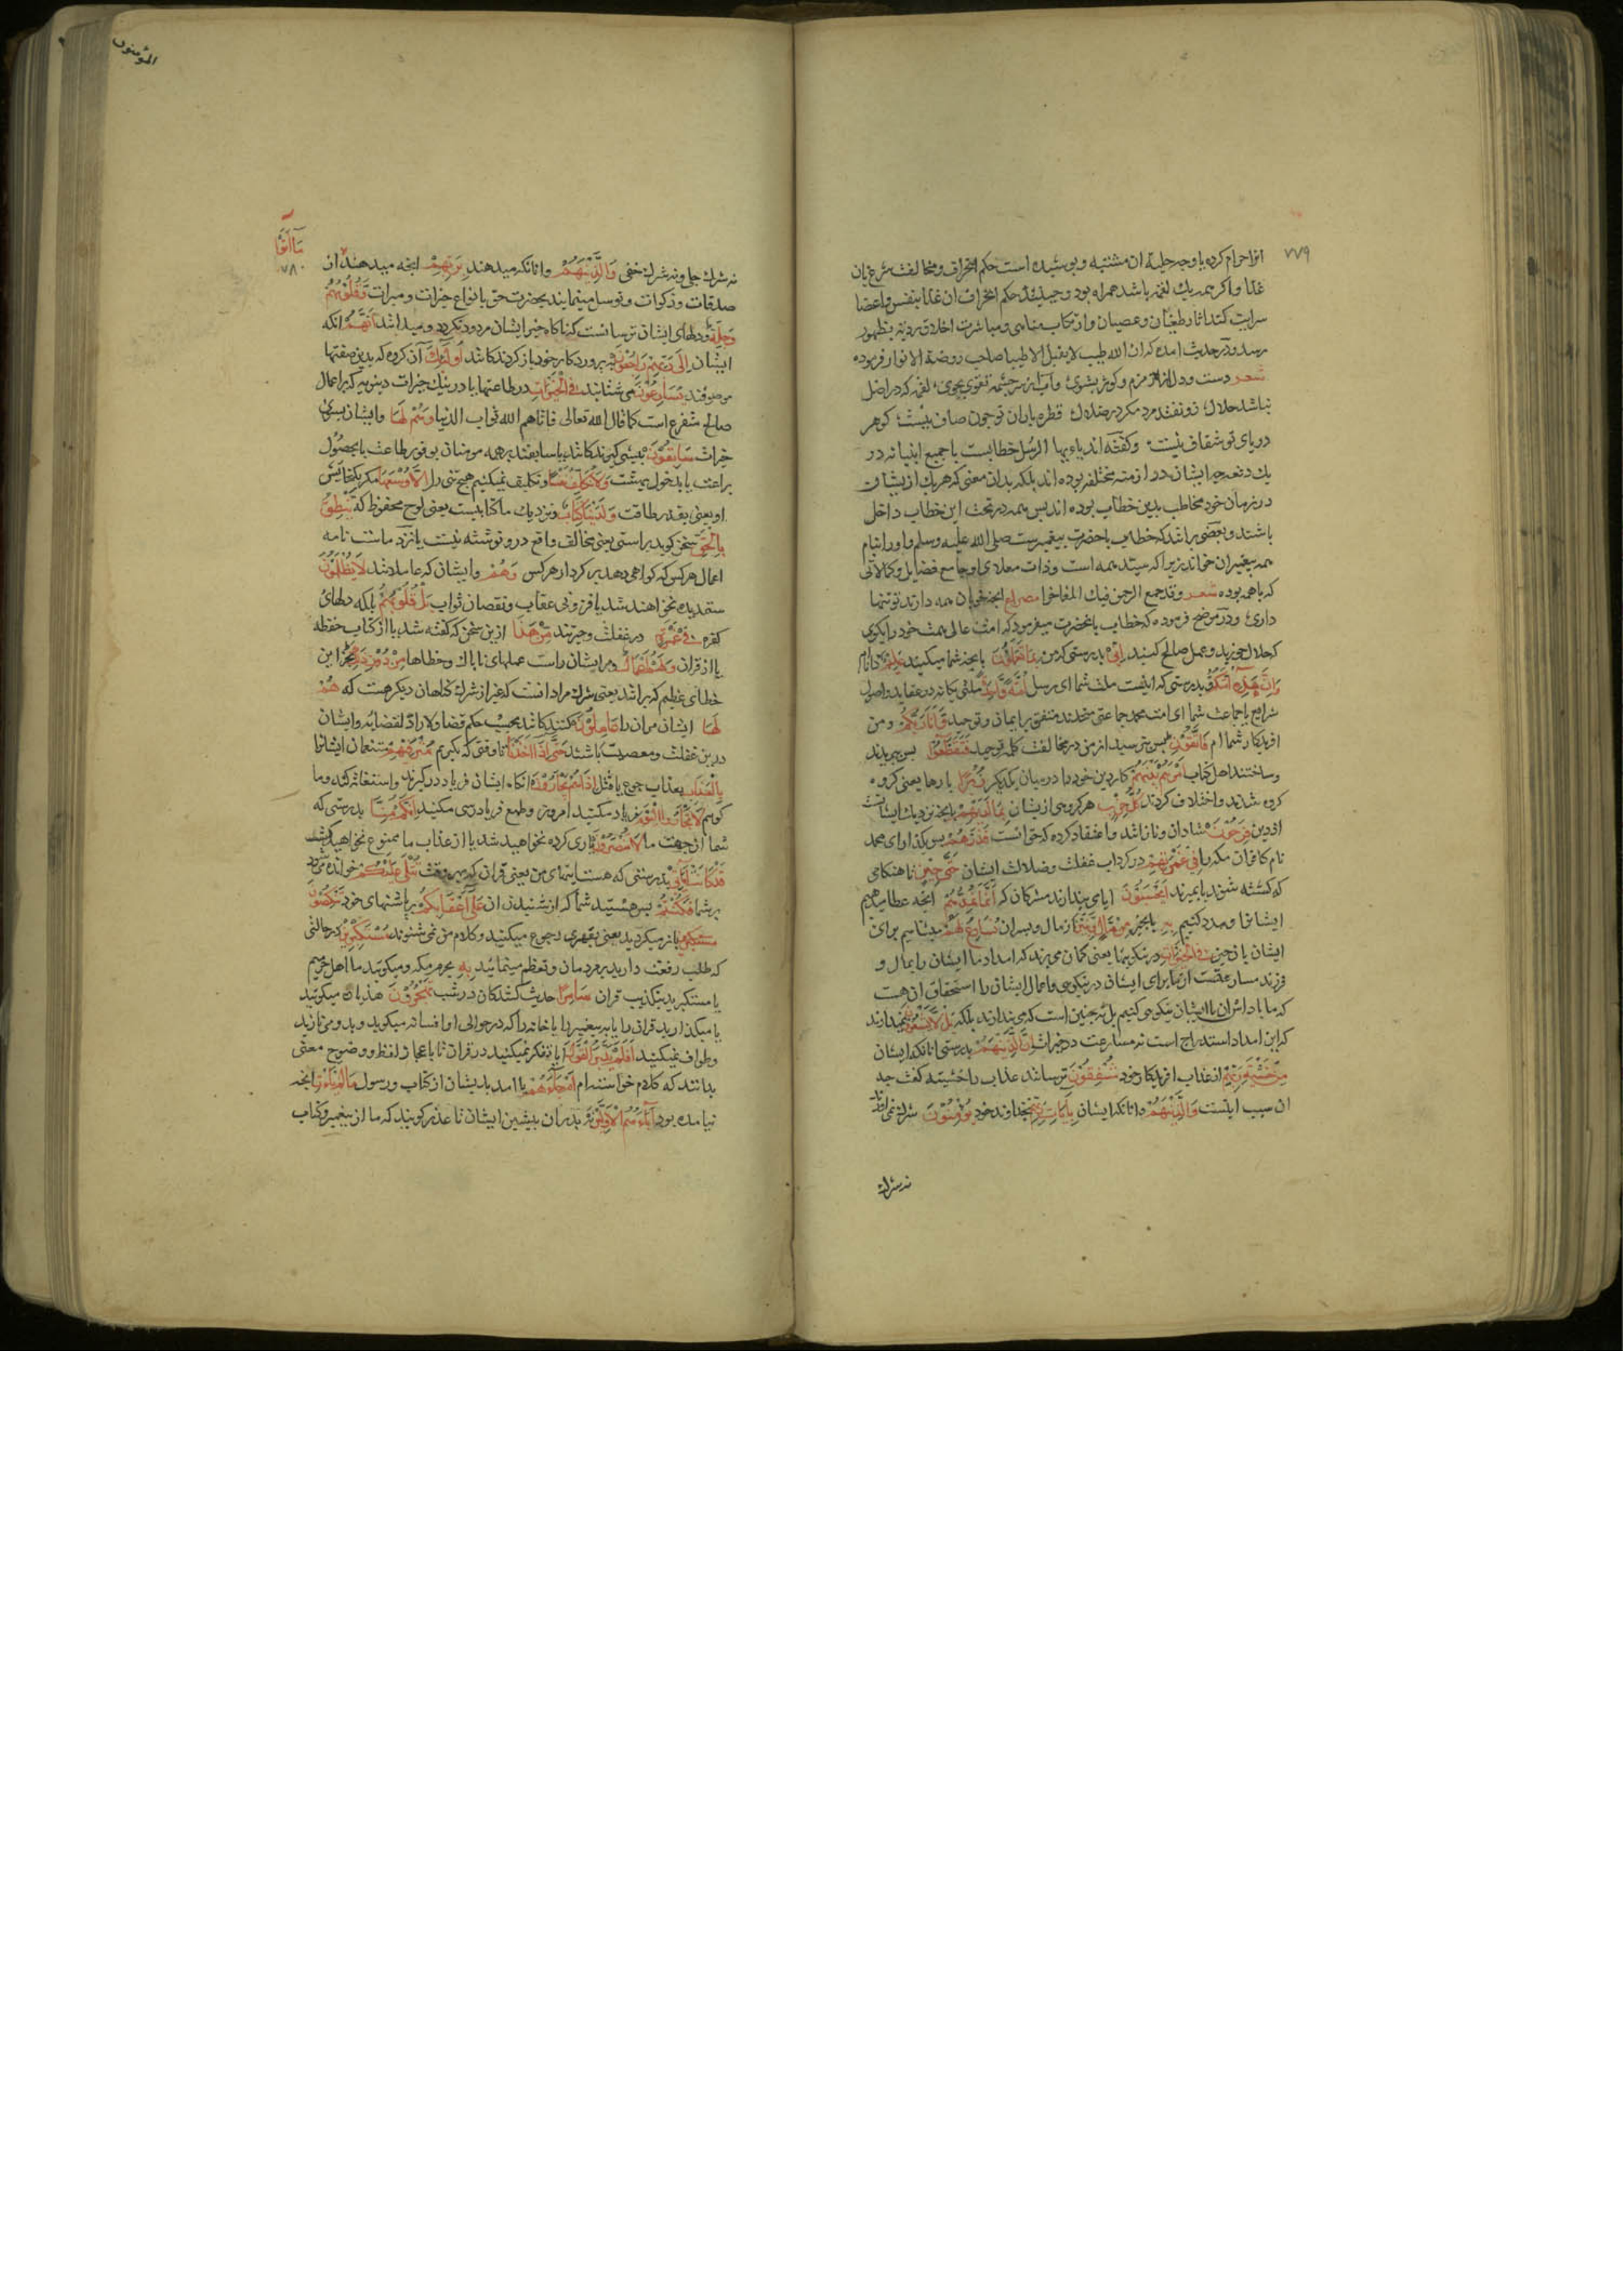 ۷۷۹
انرا حرام کرده یا وجه حلیة ان مشتبه و پوشیده است حکم انحراف و مخالفت شرع بان
غذا و اکر همه یک لقمه باشد همراه بود و حکم انحراف ان غذا بنفس و اعضا
سرایت کند اثار طغیان و عصیان و ارتکاب مناهی و مباشرت اخلاق ردیه بظهور
رسد و در حدیث امده که ان الله طیب لا یقبل الا طیبا صاحب روضة الانوار فرموده
شعر دست و دل از زمزم و کوثر بشوی وآب از سر چشمه تقوی بجوی لقمه که در اصل
نباشد حلال زو نفتد مرد مکر در ضلال قطره باران تو چون صاف نیست کوهر
دریای تو شفاف نیست وکفته اند یاءیها الرسل خطابیست با جمیع انبیا نه در
یک دفعه چه ایشان در ازمنه مختلفه بوده اند بلکه بدان معنی که هریک از ایشان
در زمان خود مخاطب بدین خطاب بوده اند پس همه در تحت این خطاب داخل
باشند و بعضی برانند که خطاب با حضرت پیغمبرست صلی الله علیه وسلم و او را بنام
همه پیغمبران خواند زیرا که سید همه است و ذات معلای او جامع فضایل و کمالاتی
که با همه بوده شعر وقد جمع الرحمن فیک المفاخرا مصراع انچه خوبان همه دارند تو تنها
داری و در موضح فرموده که خطاب با نحضرت میفرمود که امت عالی همت خود را بکوی
که حلال خورید و عمل صالح کنید انی بدرستی که من بما تعملون بانچه شما میکنید علیم دانام
وان هذه امتکم بدرستی که اینست ملت شما ای رسل امة واحدة ملتی یکانه در عقاید و اصول
شرایع یا جماعت شما ای امت محمد جماعتی متحدند متفق بر ایمان و توحید وانا ربکم ومن
افریدکار شماام فاتقون پس بترسید از من در مخالفت کلمه توحید فتقطعوا پس ببریدند
وساختند اهل کتاب امرهم بینهم کار دین خود را در میان یکدیکر زبرا پارها یعنی کروه
کروه شدند و اختلاف کردند کل حزب هر کروهی از ایشان بما لدیهم بانچه نزدیک ایشانست
از دین فرحون شادان و نازانند و اعتقاد کرده که حق انست فذرهم پس بکذار ای محمد
نام کافران مکه را فی غمرتهم در کرداب غفلت وضلالت ایشان حتی حین تا هنکامی
که کشته شوند یا بمیرند ایحسبون ایا می پندارند مشرکان که انما نمدهم انچه عطا میدهیم
ایشانرا و مدد کنیم به بانچیز من مال وبنین از مال و پسران نسارع لهم میشتابیم برای
ایشان بان چیز فی الخیرات در نیکویها یعنی کمان می برند که امداد ما ایشان را بمال و
فرزند مسارعتست از ما برای ایشان در نیکویی و اعمال ایشان را استحقاق ان هست
که ما پاداش ان با ایشان نیکویی کنیم بل نه چنین است که می پندارند بلکه بل لا یشعرون نمیدانند
که این امداد استدراج است نه مسارعت در خیرات ان الذین هم بدرستی انانکه ایشان
من خشیة ربهم از عذاب افریدکار خود مشفقون ترسانند عذاب را خشیت کفت چه
ان سبب اینست والذین هم و انانکه ایشان بآیات ربهم بخداوند خود یومنون شرک نمی ارند
نه شرک
المؤمنون
ما آتوا
۷۸۰
نه شرک جلی و نه شرک خفی والذین هم و انانکه میدهند بربهم انچه میدهند از
صدقات و زکوات و توسل مینمایند بحضرت حق بانواع خیرات و مبرات وقلوبهم
وجلة و دلهای ایشان ترسانست که ناکاه خیر ایشان مردود نکردد و میدانند انهم انکه
ایشان الی ربهم راجعون به پروردکار خود باز کردندکانند اولئک آن کروه که بدین صفتها
موصوفند یسارعون می شتابند فی الخیرات در طاعتها یا در نیل خیرات دنیویه که بر اعمال
صالحه متفرع است کما قال الله تعالی فاتاهم الله ثواب الدنیا وهم لها وایشان بسوی
خیرات سابقون پیشی کیرندکانند یا سابقند بر همه مومنان بوفور طاعت یا بحصول
براعت یا بدخول بهشت ولا نکلف نفسا و تکلیف نمیکنیم هیچ تنی را الا وسعها مکر بکنجایش
او یعنی بقدر طاقت ولدینا کتاب و نزدیک ما کتابیست یعنی لوح محفوظ که ینطق
بالحق سخن کوید براستی یعنی مخالف واقع درو نوشته نیست یا نزد ماست نامه
اعمال هرکس که کواهی دهد بر کردار هرکس وهم وایشان که عاملانند لا یظلمون
ستم دیده نخواهند شد بافزونی عقاب ونقصان ثواب بل قلوبهم بلکه دلهای
کفره فی غمرة در غفلت وحیرتند من هذا ازین سخن که کفته شد یا از کتاب حفظه
یا از قران ولهم اعمال و مر ایشان راست عملهای ناپاک وخطاها من دون ذلک بجز این
خطای عظیم که برانند یعنی شرک مراد انست که غیر از شرک کناهان دیکر هست که هم
لها ایشان مران را عاملون کنندکانند بحسب حکم قضا ولا راد لقضایه وایشان
درین غفلت ومعصیت باشند حتی اذا اخذنا تا وقتی که بکیریم مترفیهم متنعمان ایشانرا
بالعذاب بعذاب جوع یا قتل اذا هم یجأرون انکاه ایشان فریاد درکیرند واستغاثه کنند وما
کوییم لا تجأروا الیوم فریاد مکنید امروز وطمع فریادرسی مکنید انکم منا بدرستی که
شما از جهت ما لا تنصرون یاری کرده نخواهید شد یا از عذاب ما ممنوع نخواهید کشت
قد کانت آیاتی بدرستی که هست ایتهای من یعنی قران که بهر وقت تتلی علیکم خوانده میشود
بر شما فکنتم پس هستید شما که از شنیدن ان علی اعقابکم بر پاشنهای خود تنکصون
باز میکردید یعنی بقهقری رجوع میکنید وکلام من نمی شنوید مستکبرین در حالتی
که طلب رفعت دارید بر مردمان وتعظم مینمایید به بحرم مکه ومیکویید ما اهل حرمیم
یا مستکبرید بتکذیب قران سامرا حدیث کنندکان در شب تهجرون هذیان میکویید
یا میکذارید قران را یا پیغمبر را یا خانه را که در حوالی او افسانه میکویید وبدو می نازید
وطواف نمیکنید افلم یدبروا القول ایا تفکر نمیکنید در قران تا باعجاز لفظ ووضوح معنی
بدانند که کلام خداست ام جاءهم یا امد بدیشان از کتاب ورسول ما لم یات انچه
نیامده بود آباءهم الاولین پدران پیشین ایشان تا عذر کویند که ما از پیغمبر وکتاب